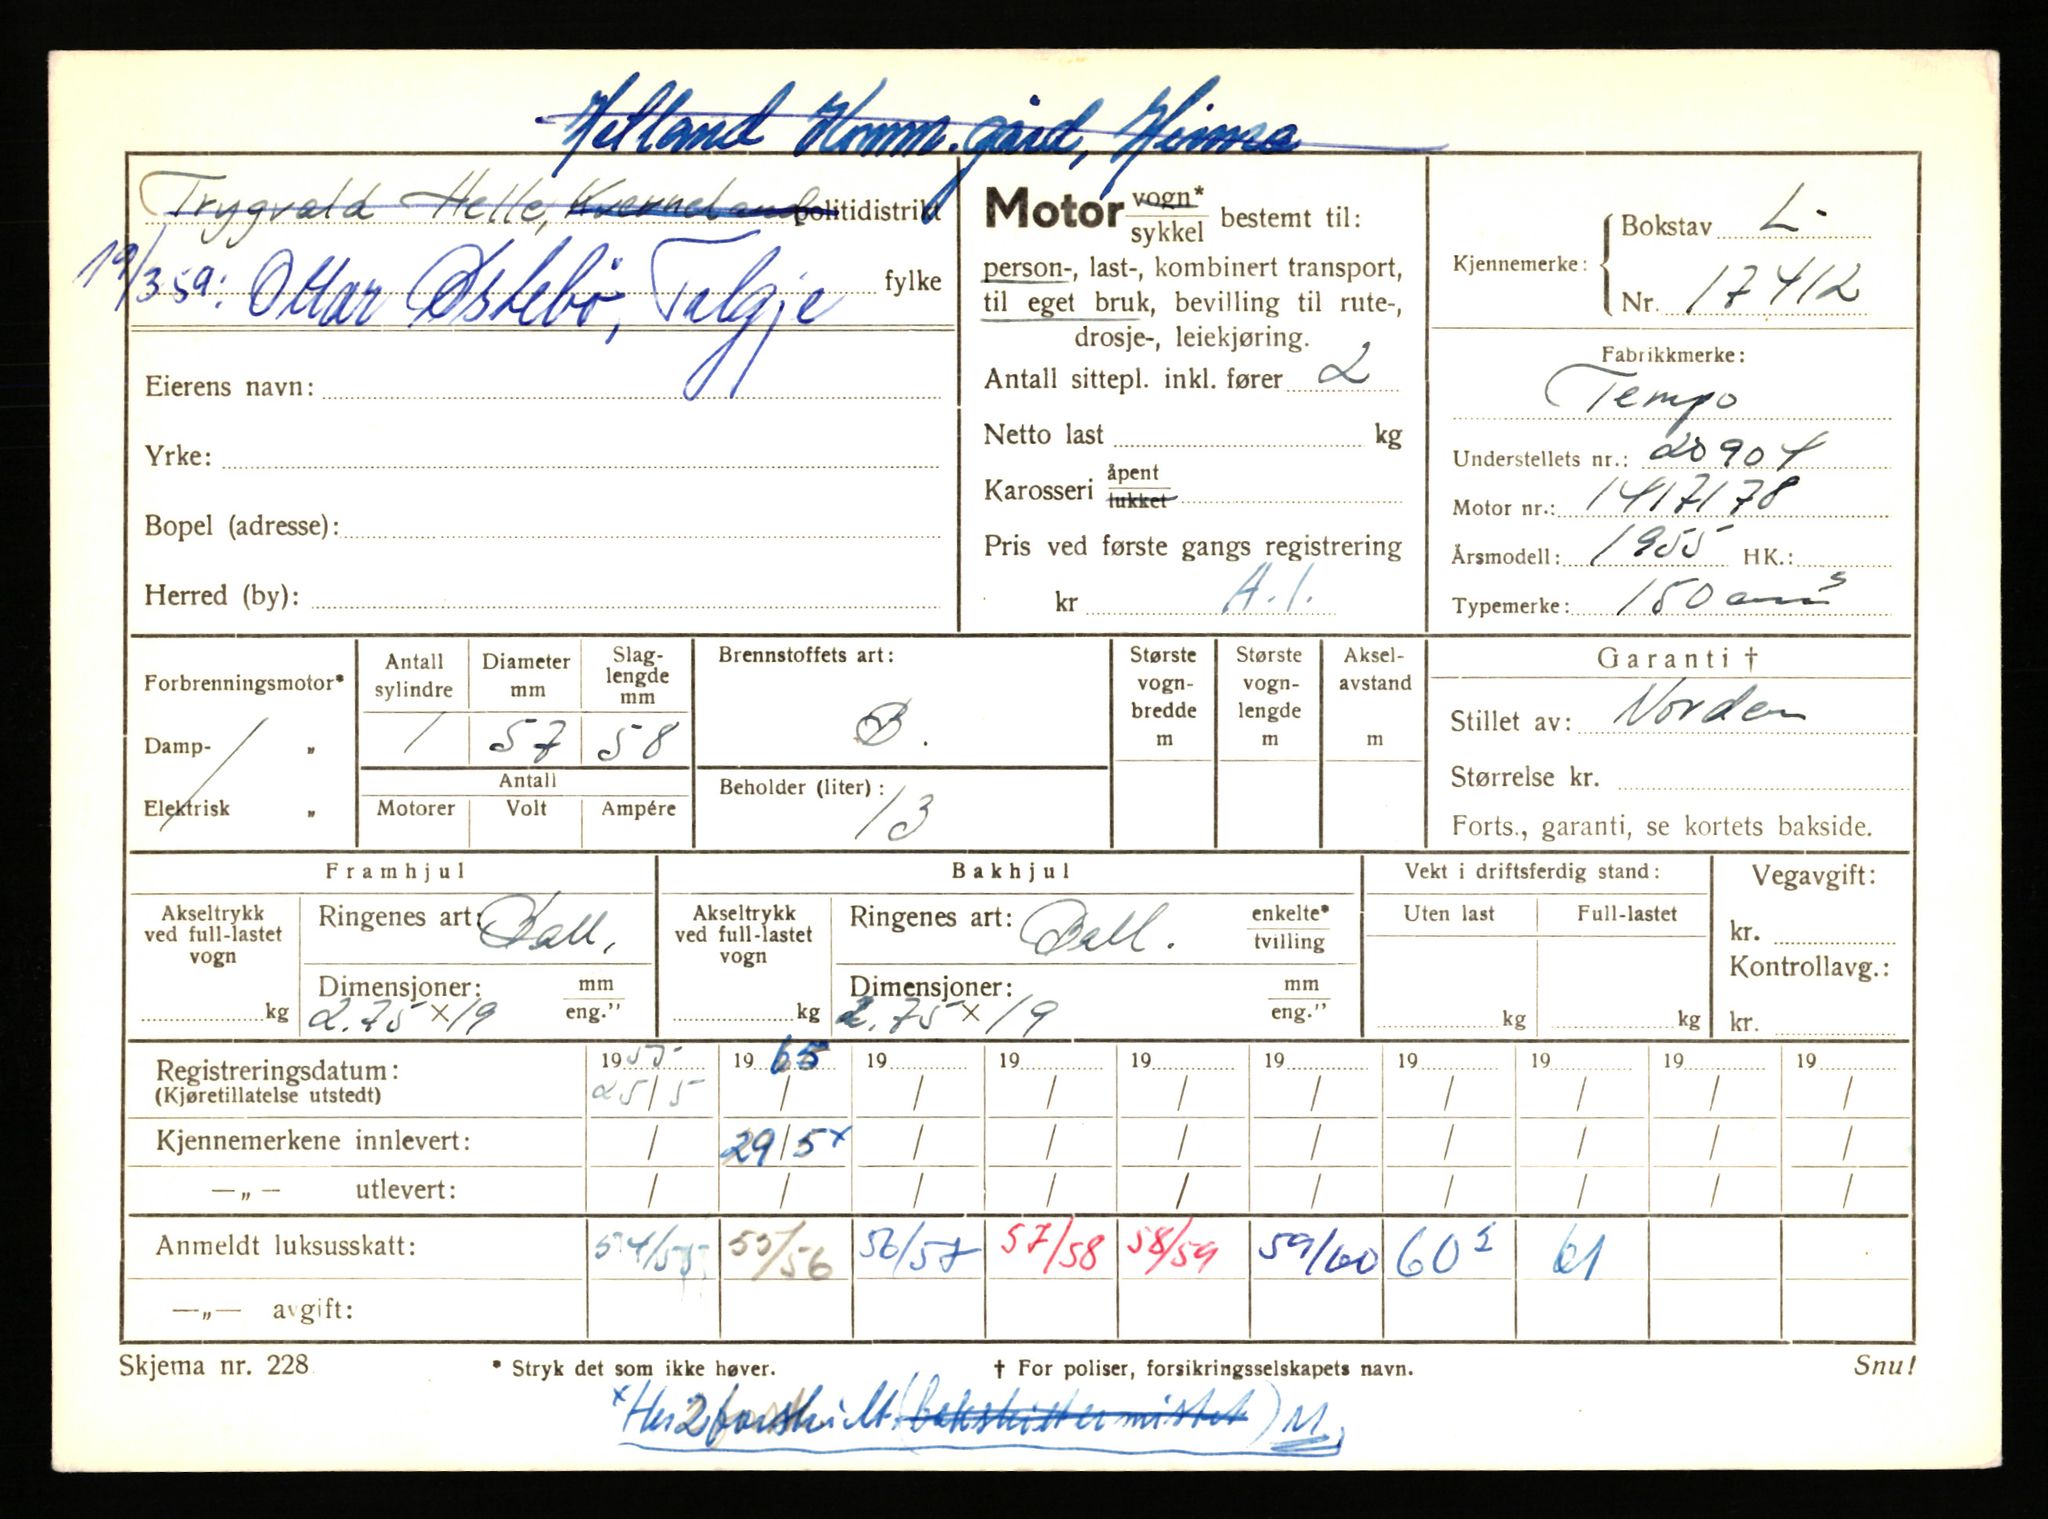 Helland Komm.gård, Hinna
Trygvald Helle, Kverneland politidistrikt
19/3 59: Ottar Østebö, Talgje fylke
Eierens navn:
Yrke:
Bopel (adresse):
Herred (by):
Motor vogn* / sykkel bestemt til:
person-, last-, kombinert transport,
til eget bruk, bevilling til rute-,
drosje-, leiekjøring.
Antall sittepl. inkl. fører 2
Netto last kg
Karosseri åpent / lukket
Pris ved første gangs registrering
kr A.I.
Kjennemerke: Bokstav L-
Nr. 17412
Fabrikkmerke:
Tempo
Understellets nr.: 20904
Motor nr.: 1417178
Årsmodell: 1955 HK.:
Typemerke: 150 cm³
Forbrenningsmotor*
Damp- „
Elektrisk „
Antall sylindre Diameter mm Slaglengde mm
1 57 58
Antall
Motorer Volt Ampére
Brennstoffets art:
B.
Beholder (liter):
13
Største vognbredde m
Største vognlengde m
Akselavstand m
Garanti †
Stillet av: Norden
Størrelse kr.
Forts., garanti, se kortets bakside.
Framhjul
Akseltrykk ved full-lastet vogn
kg
Ringenes art: Ball.
Dimensjoner: mm / eng.”
2.75 x 19
Bakhjul
Akseltrykk ved full-lastet vogn
kg
Ringenes art: Ball. enkelte* / tvilling
Dimensjoner: mm / eng.”
2.75 x 19
Vekt i driftsferdig stand:
Uten last Full-lastet
kg kg
Vegavgift:
kr.
Kontrollavg.:
kr.
Registreringsdatum: 1955 1965 19 19 19 19 19 19 19 19
(Kjøretillatelse utstedt) 25/5 / / / / / / / / /
Kjennemerkene innlevert: / 29/5x / / / / / / / /
—„— utlevert: / / / / / / / / / /
Anmeldt luksusskatt: 54/55 55/56 56/57 57/58 58/59 59/60 60½ 61
—„— avgift:
Skjema nr. 228 * Stryk det som ikke høver. † For poliser, forsikringsselskapets navn. Snu!
(bakskiltet mistet)